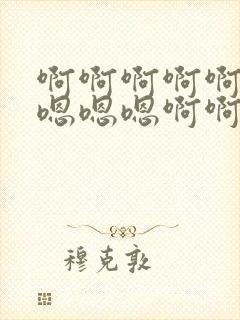 啊啊啊啊啊
嗯嗯嗯啊啊
穆克敦